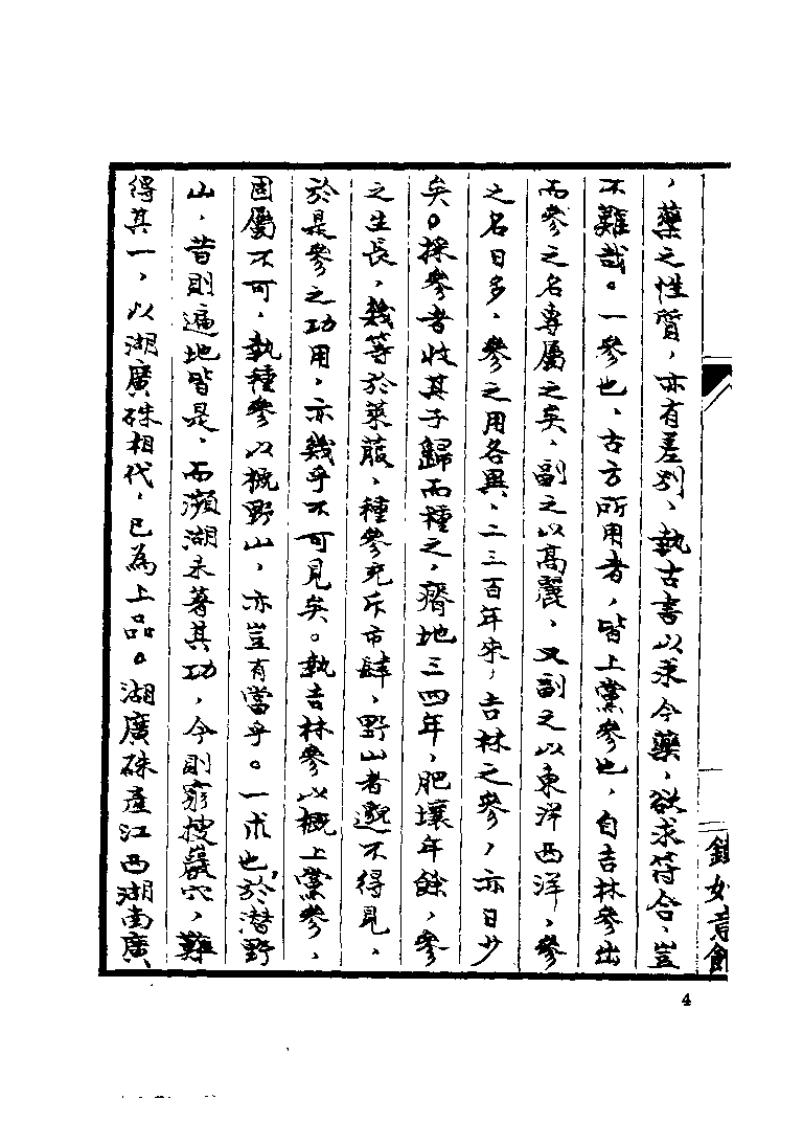 ，藥之性質，亦有差別、執古書以求今藥，欲求符合、豈
不難哉。一參也、古方所用者，皆上黨參也，自吉林參出
而參之名專屬之矣、副之以高麗，又副之以東洋西洋，參
之名日多、參之用各異、二三百年來，吉林之參，亦日少
矣。採參者收其子歸而種之，瘠地三四年，肥壤年餘，參
之生長，幾等於萊菔、種參充斥市肆，野山者邈不得見、
於是參之功用，亦幾乎不可見矣。執吉林參以概上黨參，
固屬不可，執種參以概野山，亦豈有當乎。一朮也，於潛野
山，昔則遍地皆是、而瀕湖未著其功，今則窮搜巖穴，難
得其一，以湖廣硃相代，已為上品。湖廣硃產江西湖南廣、
館
4